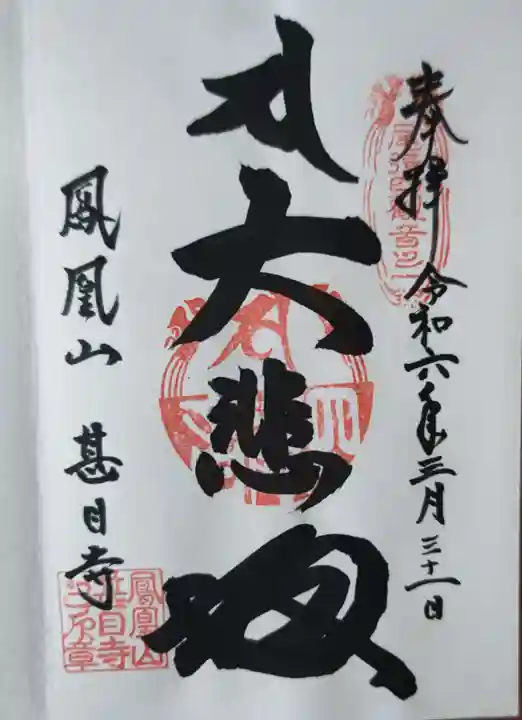 奉拝 令和六年三月三十一日
大悲殿
鳳凰山 甚目寺
鳳凰山
甚目寺